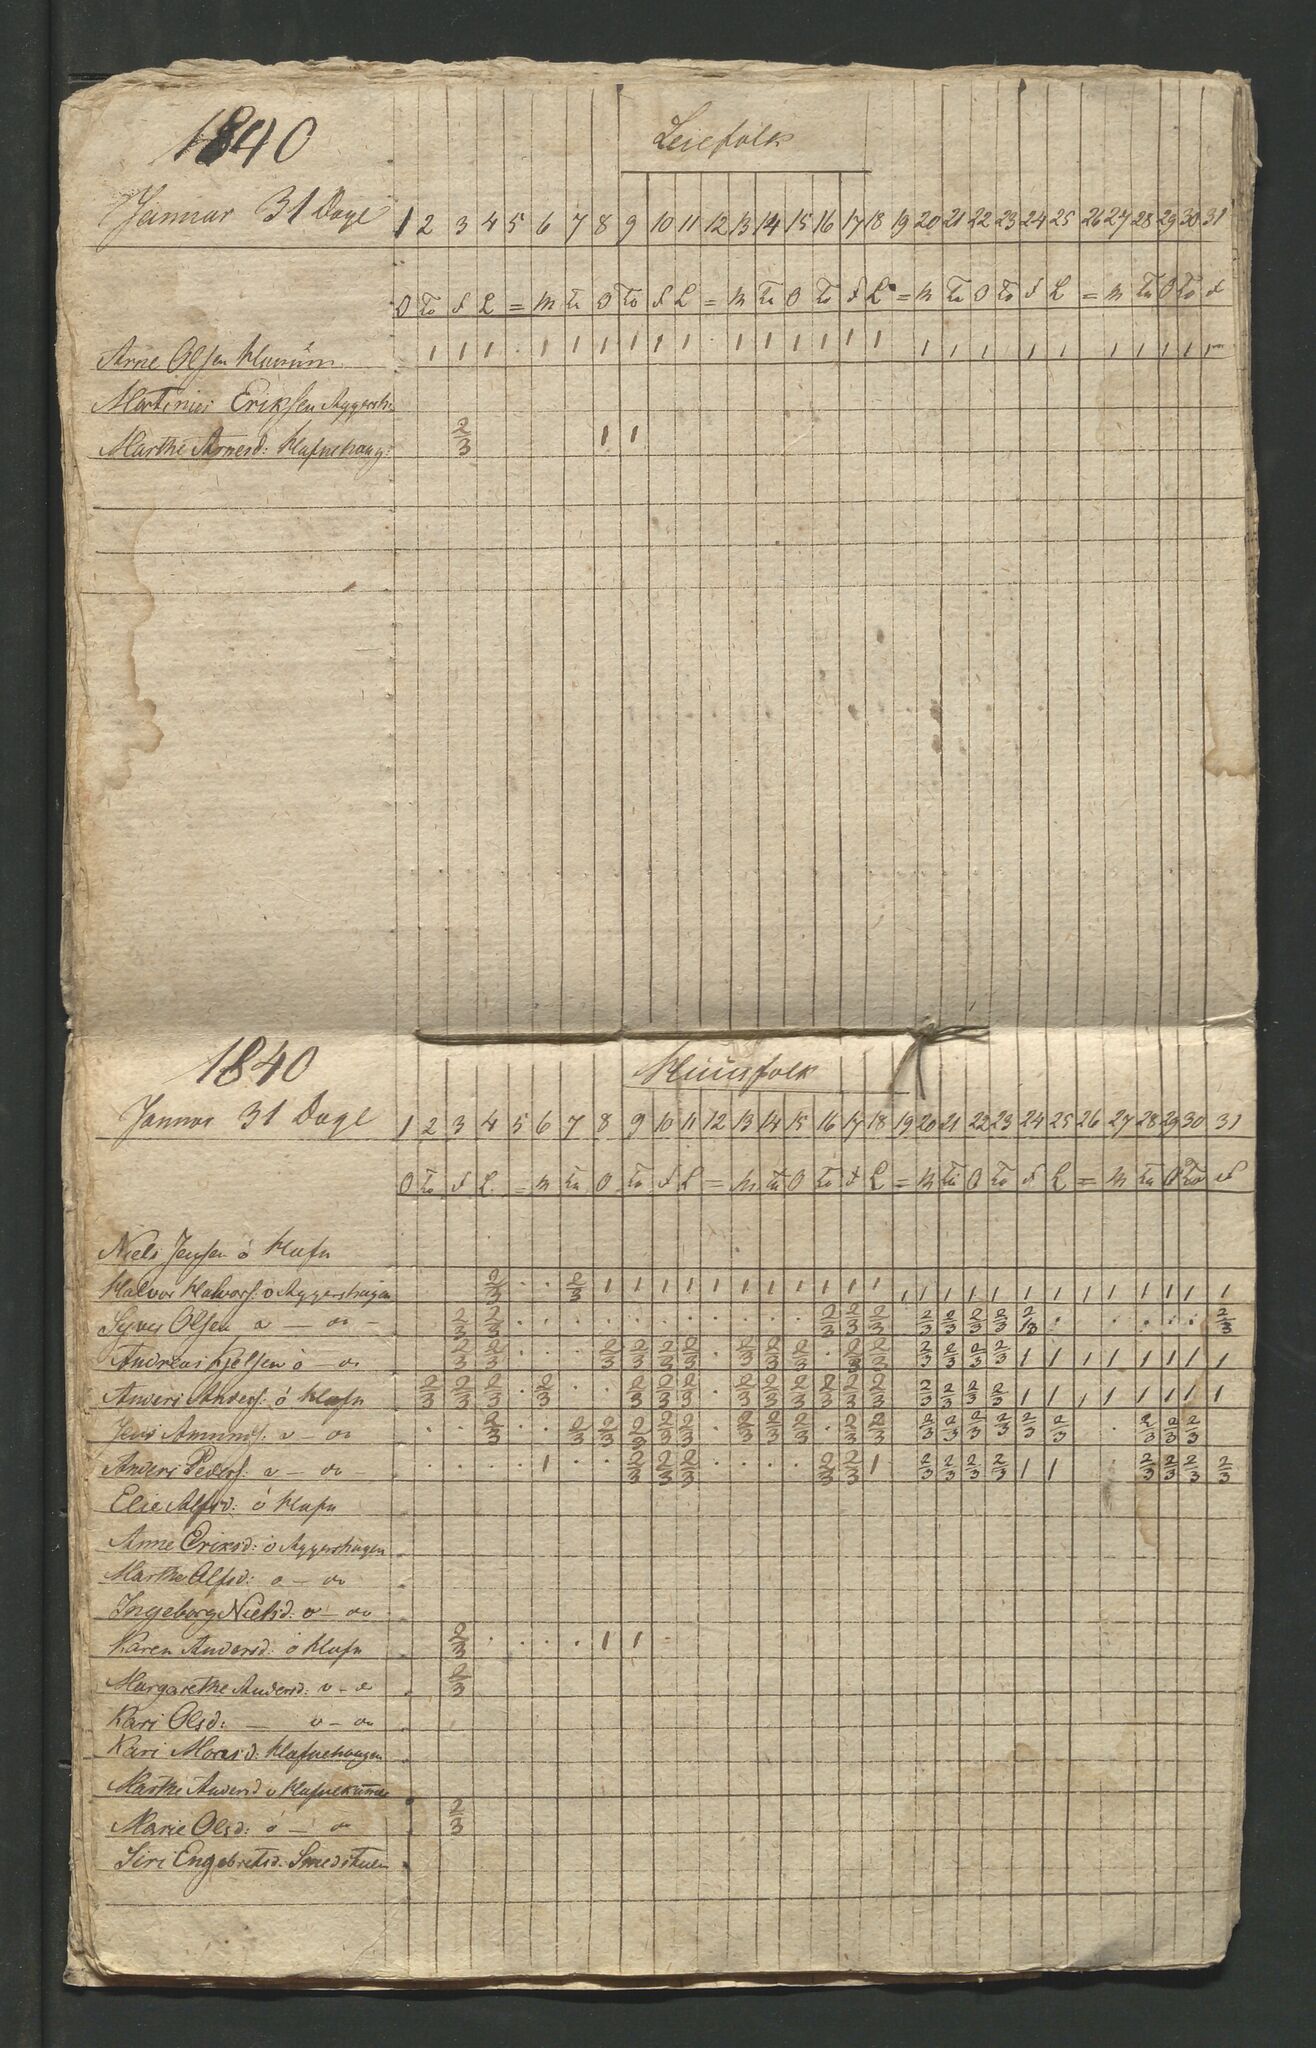 1840
Leiefolk
Januar 31 Dage 1 2 3 4 5 6 7 8 9 10 11 12 13 14 15 16 17 18 19 20 21 22 23 24 25 26 27 28 29 30 31
O To F L = M Tu O To F L = M Tu O To F L = M Tu O To F L = M Tu O To F
Arne Olsen 1 1 1 . 1 1 1 1 1 1 . 1 1 1 1 1 1 1 1 1 1 1 1 1 1 1 1
Martinus Eriksen
Marthe Arnesd: 2/3 1 1
1840
Huusfolk
Januar 31 Dage 1 2 3 4 5 6 7 8 9 10 11 12 13 14 15 16 17 18 19 20 21 22 23 24 25 26 27 28 29 30 31
O To F L = M Tu O To F L = M Tu O To F L = M Tu O To F L = M Tu O To F
Niels Jensen ó Hafn
Halvor Halvors: o Aggershagen 2/3 . . 2/3 1 1 1 1 1 1 1 1 1 1 1 1 1 1 1 1 1 1 1 1 1 1 1 1
Syver Olsen o — do — 2/3 2/3 . . . . . . . . . . . 2/3 2/3 2/3 2/3 2/3 2/3 2/3 . . . . . 2/3
Andreas Kjelsen ó — do 2/3 2/3 . . . 2/3 2/3 2/3 2/3 . 2/3 2/3 2/3 . 2/3 2/3 2/3 2/3 2/3 2/3 1 1 1 1 1 1 1 1
Anders Anders: ó Hafn 2/3 2/3 2/3 . 2/3 2/3 2/3 2/3 . 2/3 2/3 2/3 2/3 2/3 2/3 2/3 2/3 2/3 2/3 1 1 1 1 1 1 1 1
Jens Amunds: o — do . . 2/3 . . 2/3 2/3 2/3 2/3 2/3 . 2/3 2/3 2/3 . 2/3 2/3 2/3 2/3 2/3 2/3 2/3 2/3 . 2/3 2/3 2/3
Anders Peders: o — do . . . . 1 . . 2/3 2/3 2/3 . . . . 2/3 2/3 1 2/3 2/3 2/3 2/3 1 1 . 2/3 2/3 2/3 2/3
Elie Alfsd: ó Hafn
Anne Eriksd: o Aggershagen
Marthe Olsd: o — do
Ingeborg Nielsd: o — do
Karen Andersd: o Hafn 2/3 . . . . 1 1
Margarethe Andersd: o — do 2/3
Kari Olsd: — o — do
Kari Monsd: Hafnehaugen
Marthe Andersd o
Marie Olsd: ó — do 2/3
Siri Engebretsd: Smedstuen